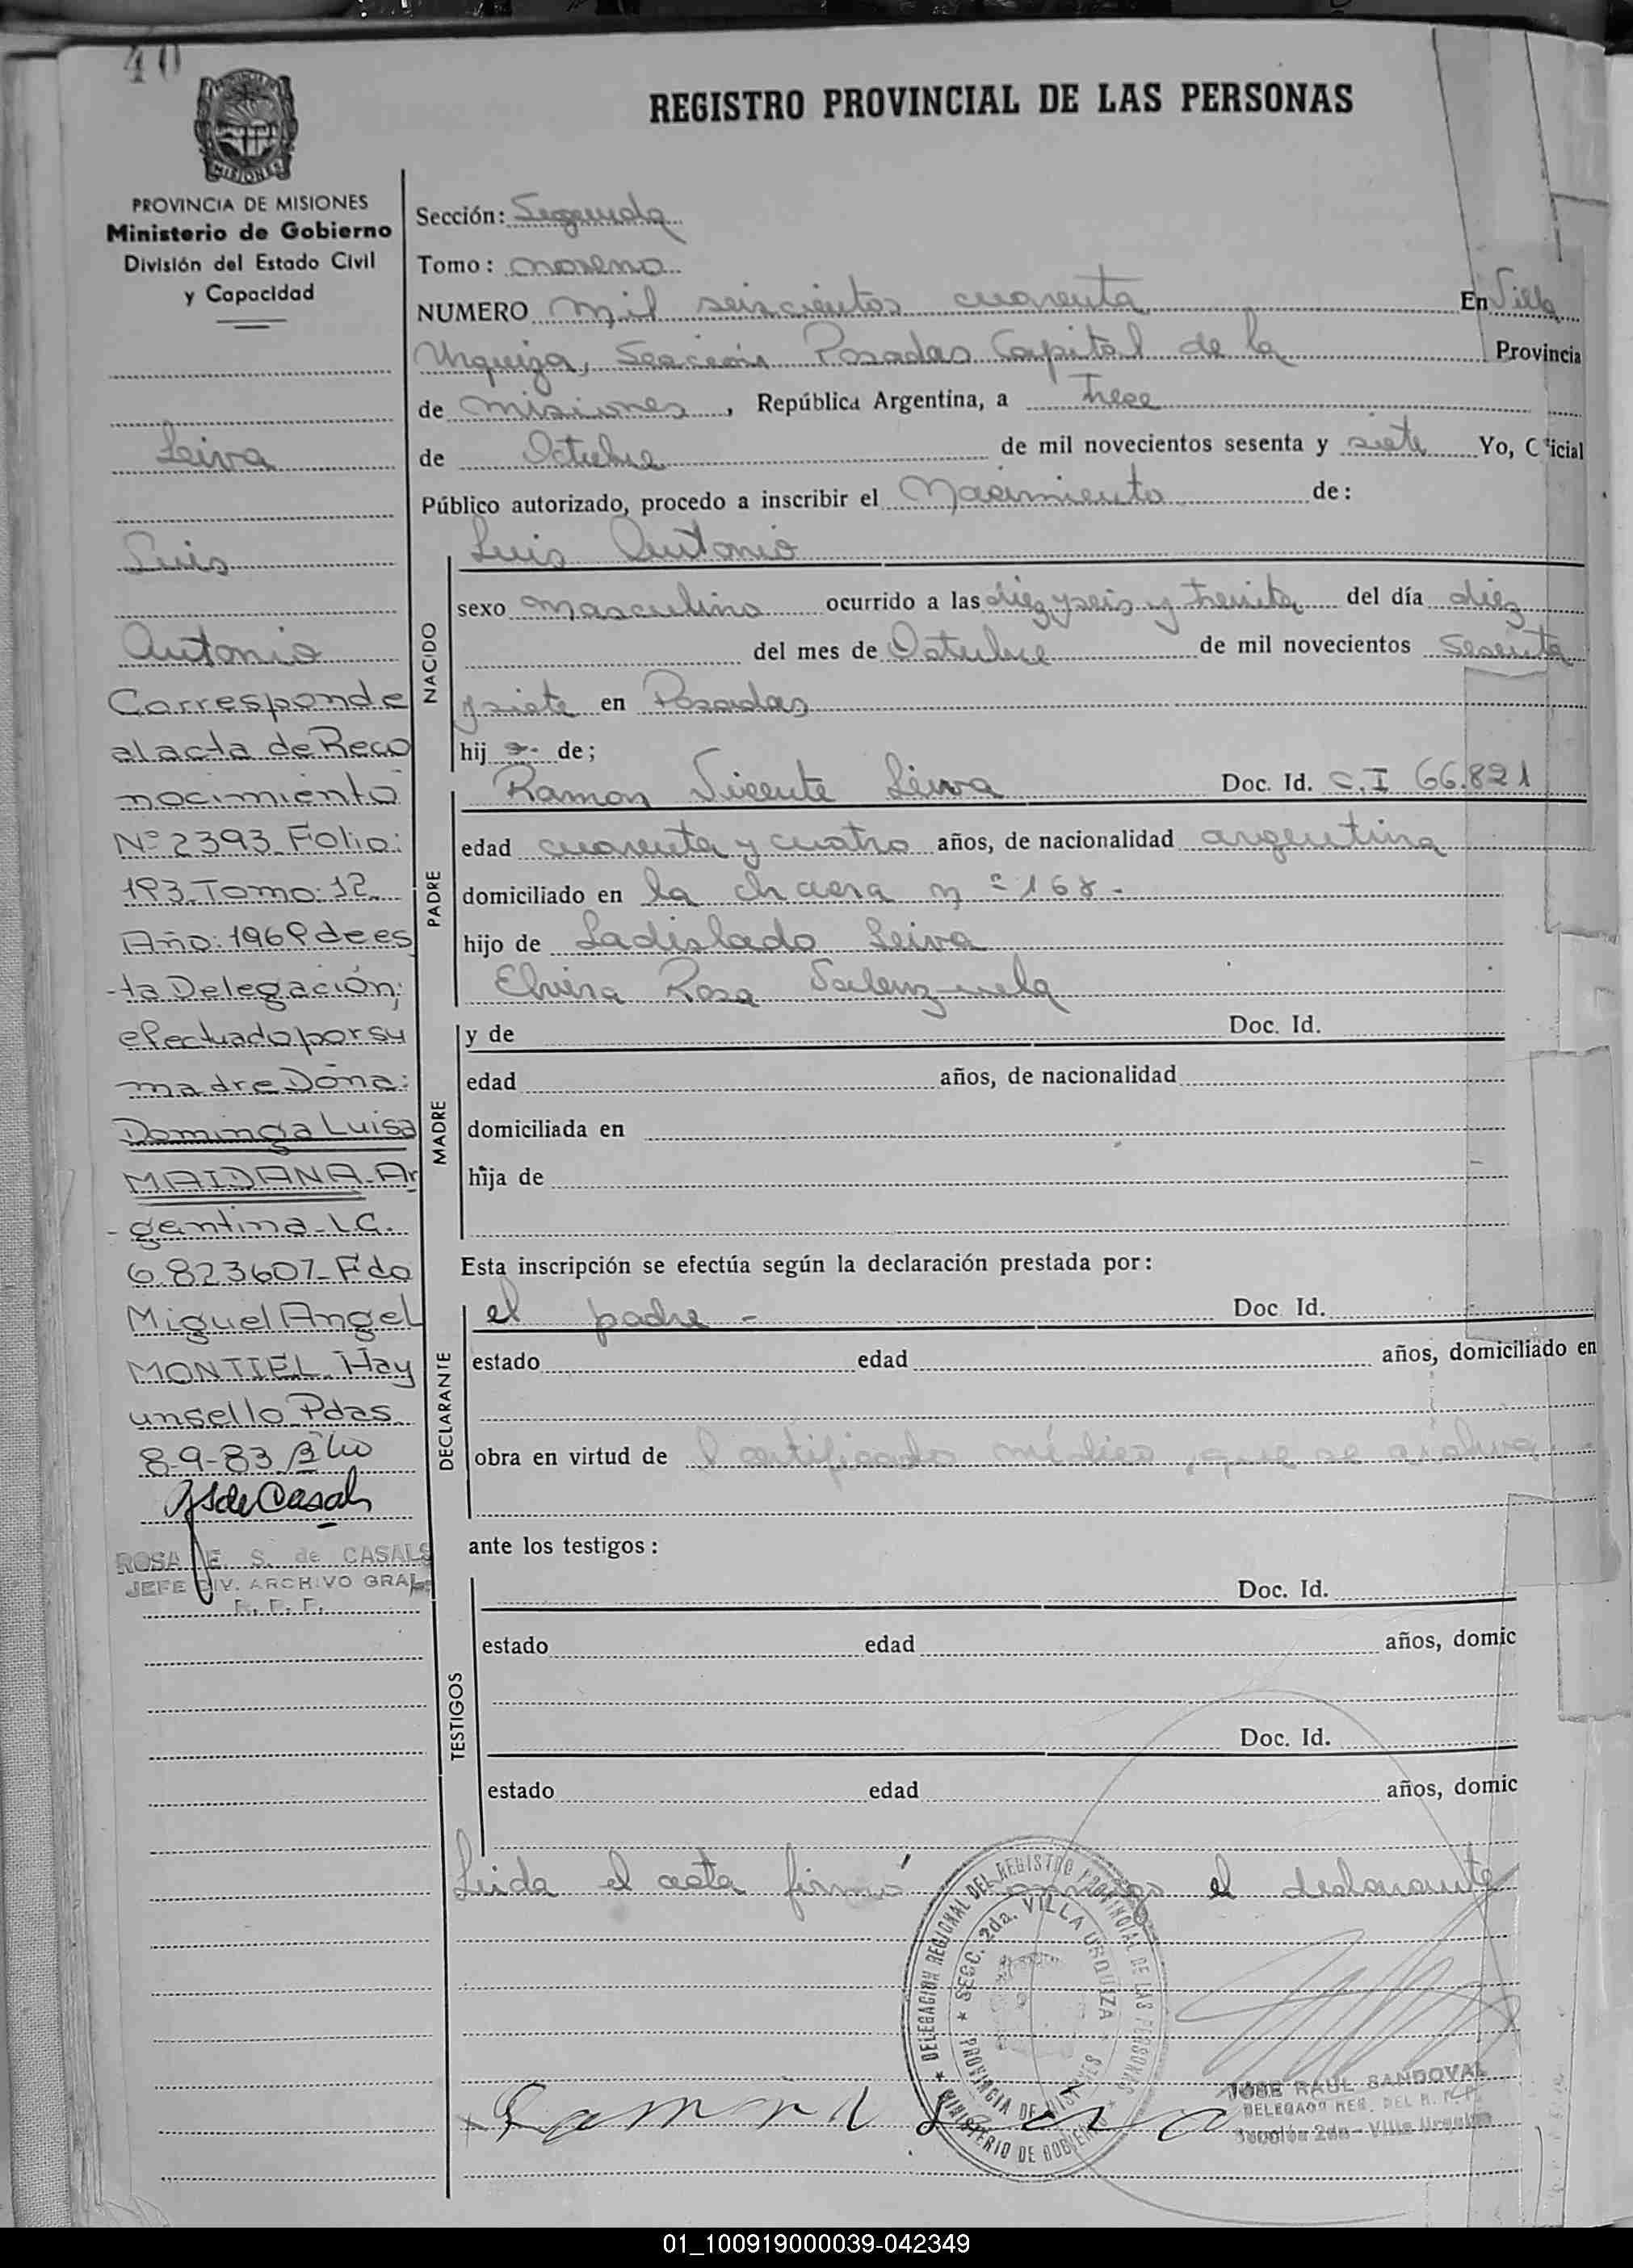 40
REGISTRO PROVINCIAL DE LAS PERSONAS
MISIONES
PROVINCIA DE MISIONES
Ministerio de Gobierno
División del Estado Civil
y Capacidad
Leiva
Luis
Antonio
Corresponde
al acta de Reco
nocimiento
Nº 2393 Folio:
193 Tomo: 12
Año: 1969 de es
-ta Delegación,
efectuado por su
madre Doña:
Dominga Luisa
MAIDANA-Ar
-gentina-L.C.
6.823607-Fdo
Miguel Angel
MONTIEL. Hay
un sello Pdas
8-9-83
ROSA E. S. de CASALS
JEFE DIV. ARCHIVO GRAL.
Sección: Segunda
Tomo: noveno
NUMERO mil seiscientos cuarenta En Villa
Urquiza, Sección Posadas Capital de la Provincia
de misiones, República Argentina, a Trece
de Octubre de mil novecientos sesenta y siete Yo, Oficial
Público autorizado, procedo a inscribir el Nacimiento de:
NACIDO
Luis Antonio
sexo masculino ocurrido a las diez y seis y treinta del día diez
del mes de Octubre de mil novecientos sesenta
y siete en Posadas
hij o- de;
PADRE
Ramon Vicente Leiva Doc. Id. C.I 66.821
edad cuarenta y cuatro años, de nacionalidad argentina
domiciliado en la chacra nº 168-
hijo de Ladislado Leiva
Elvira Rosa Valenzuela
MADRE
y de Doc. Id.
edad años, de nacionalidad
domiciliada en
hija de
Esta inscripción se efectúa según la declaración prestada por:
DECLARANTE
el padre - Doc Id.
estado edad años, domiciliado en
obra en virtud de l certificado médico, que se archiva
ante los testigos:
TESTIGOS
Doc. Id.
estado edad años, domic
Doc. Id.
estado edad años, domic
Leida el acta firmó conmigo el declarante
DELEGACION REGIONAL DEL REGISTRO PROVINCIAL DE LAS PERSONAS
SECC. 2da. VILLA URQUIZA
PROVINCIA DE MISIONES
MINISTERIO DE GOBIERNO
Ramon Leiva
JOSE RAUL SANDOVAL
DELEGADO REG. DEL R. P. P.
Sección 2da - Villa Urquiza
01_100919000039-042349